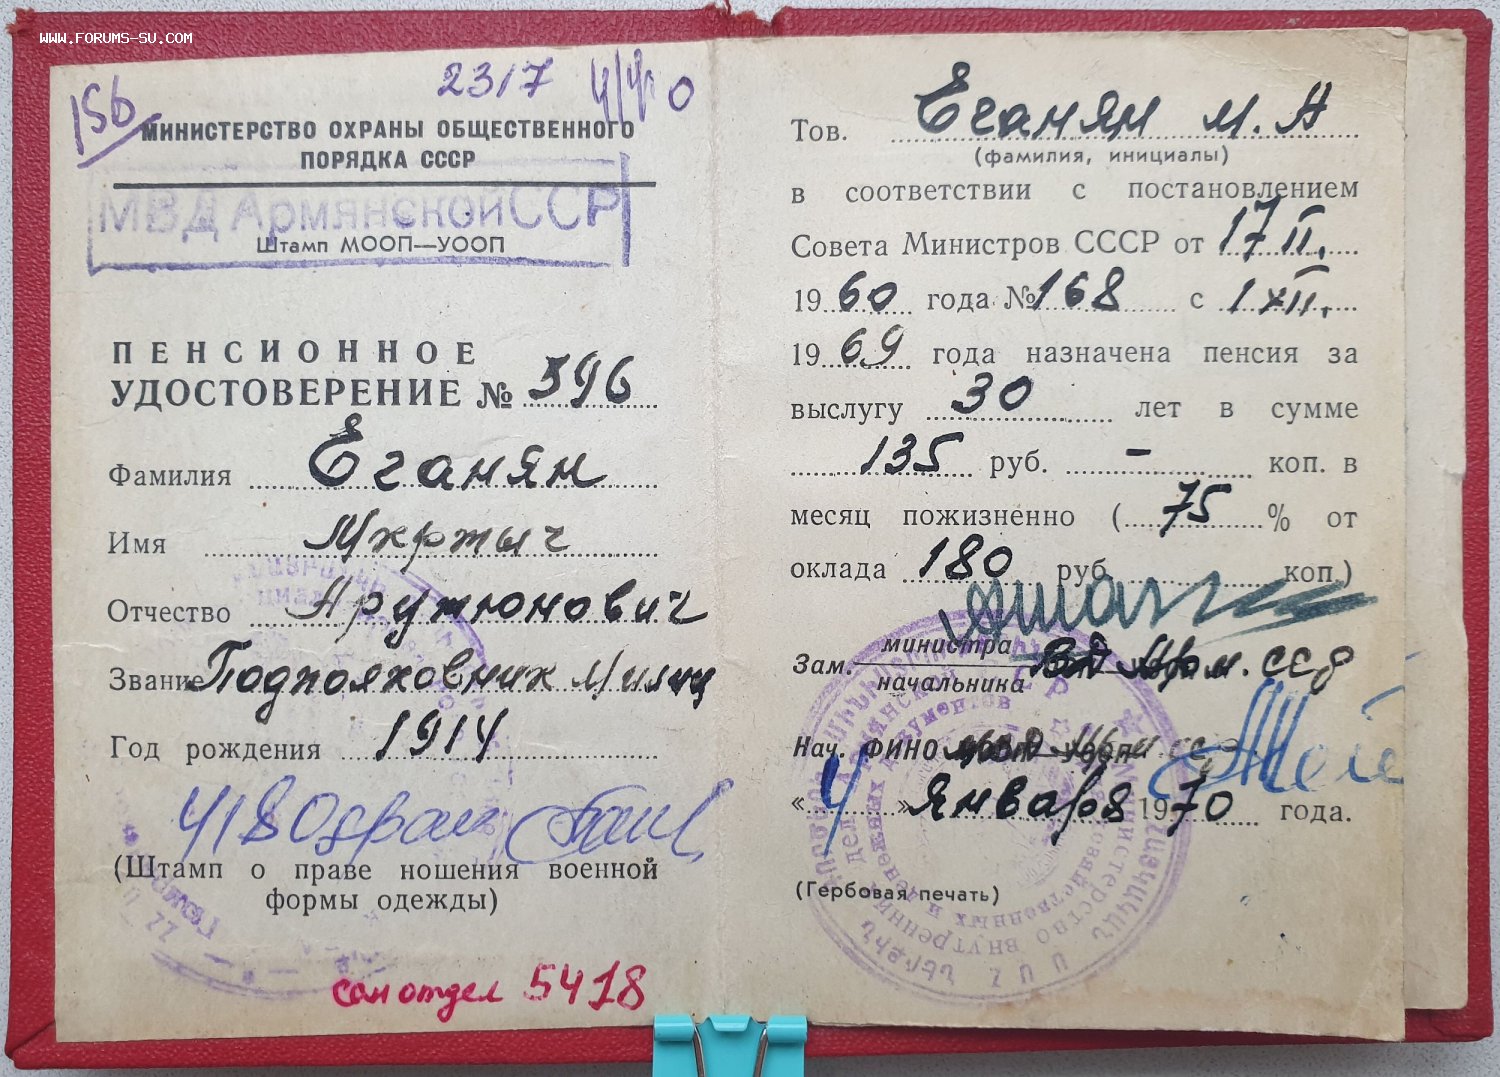 WWW.FORUMS-SU.COM
156
2317
МИНИСТЕРСТВО ОХРАНЫ ОБЩЕСТВЕННОГО
ПОРЯДКА СССР
МВД Армянской ССР
Штамп МООП—УООП
ПЕНСИОННОЕ
УДОСТОВЕРЕНИЕ № 396
Фамилия Еганян
Имя Мкртыч
Отчество Арутюнович
Звание Подполковник Милиц
Год рождения 1914
(Штамп о праве ношения военной
формы одежды)
сан отдел 5418
Тов. Еганян М. А
(фамилия, инициалы)
в соответствии с постановлением
Совета Министров СССР от 17 II.
1960 года № 168 с 1 XII.
1969 года назначена пенсия за
выслугу 30 лет в сумме
135 руб. - коп. в
месяц пожизненно (75% от
оклада 180 руб. коп.)
Зам. министра ВД Арм. ССР
начальника
Нач. ФИНО
«4» Января 1970 года.
(Гербовая печать)